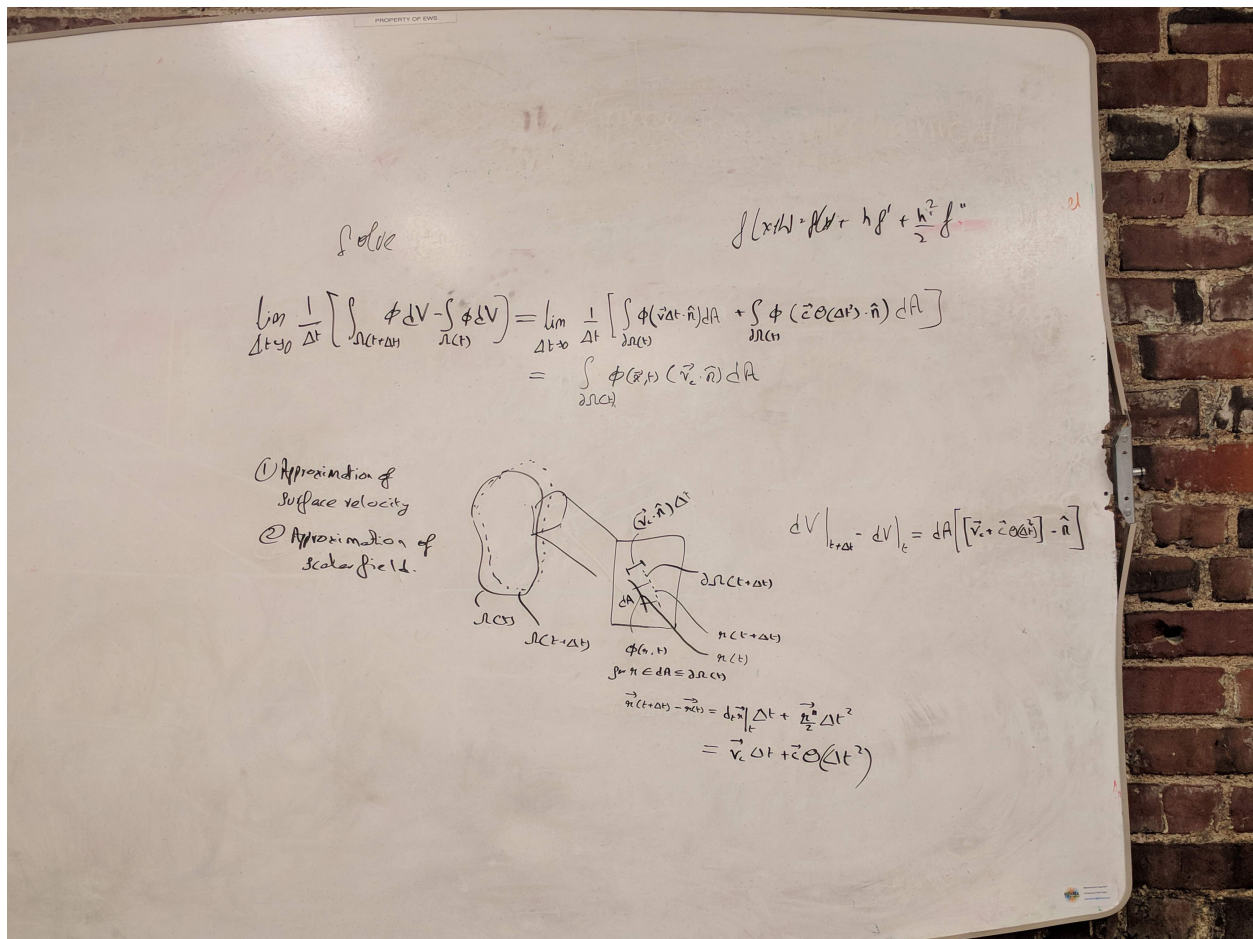 PROPERTY OF EWS
Solve
f(x+h) = f(x) + hf' + h²/2 f"
lim Δt→0 1/Δt [∫Ω(t+Δt) ϕdV - ∫Ω(t) ϕdV] = lim Δt→0 1/Δt [∫∂Ω(t) ϕ(v⃗Δt·n̂)dA + ∫∂Ω(t) ϕ (c⃗Θ(Δt²)·n̂) dA]
= ∫∂Ω(t) ϕ(x⃗,t) (v⃗c·n̂) dA
① Approximation of
surface velocity
② Approximation of
scalar field.
(v⃗c·n̂)Δt
dV|t+Δt - dV|t = dA[[v⃗c + c⃗Θ(Δt²)] - n̂]
∂Ω(t+Δt)
dA
Ω(t)
Ω(t+Δt)
r(t+Δt)
r(t)
ϕ(r,t)
for r ∈ dA ⊆ ∂Ω(t)
r⃗(t+Δt) - r⃗(t) = dt r⃗|t Δt + r⃗"/2 Δt²
= v⃗c Δt + c⃗Θ(Δt²)